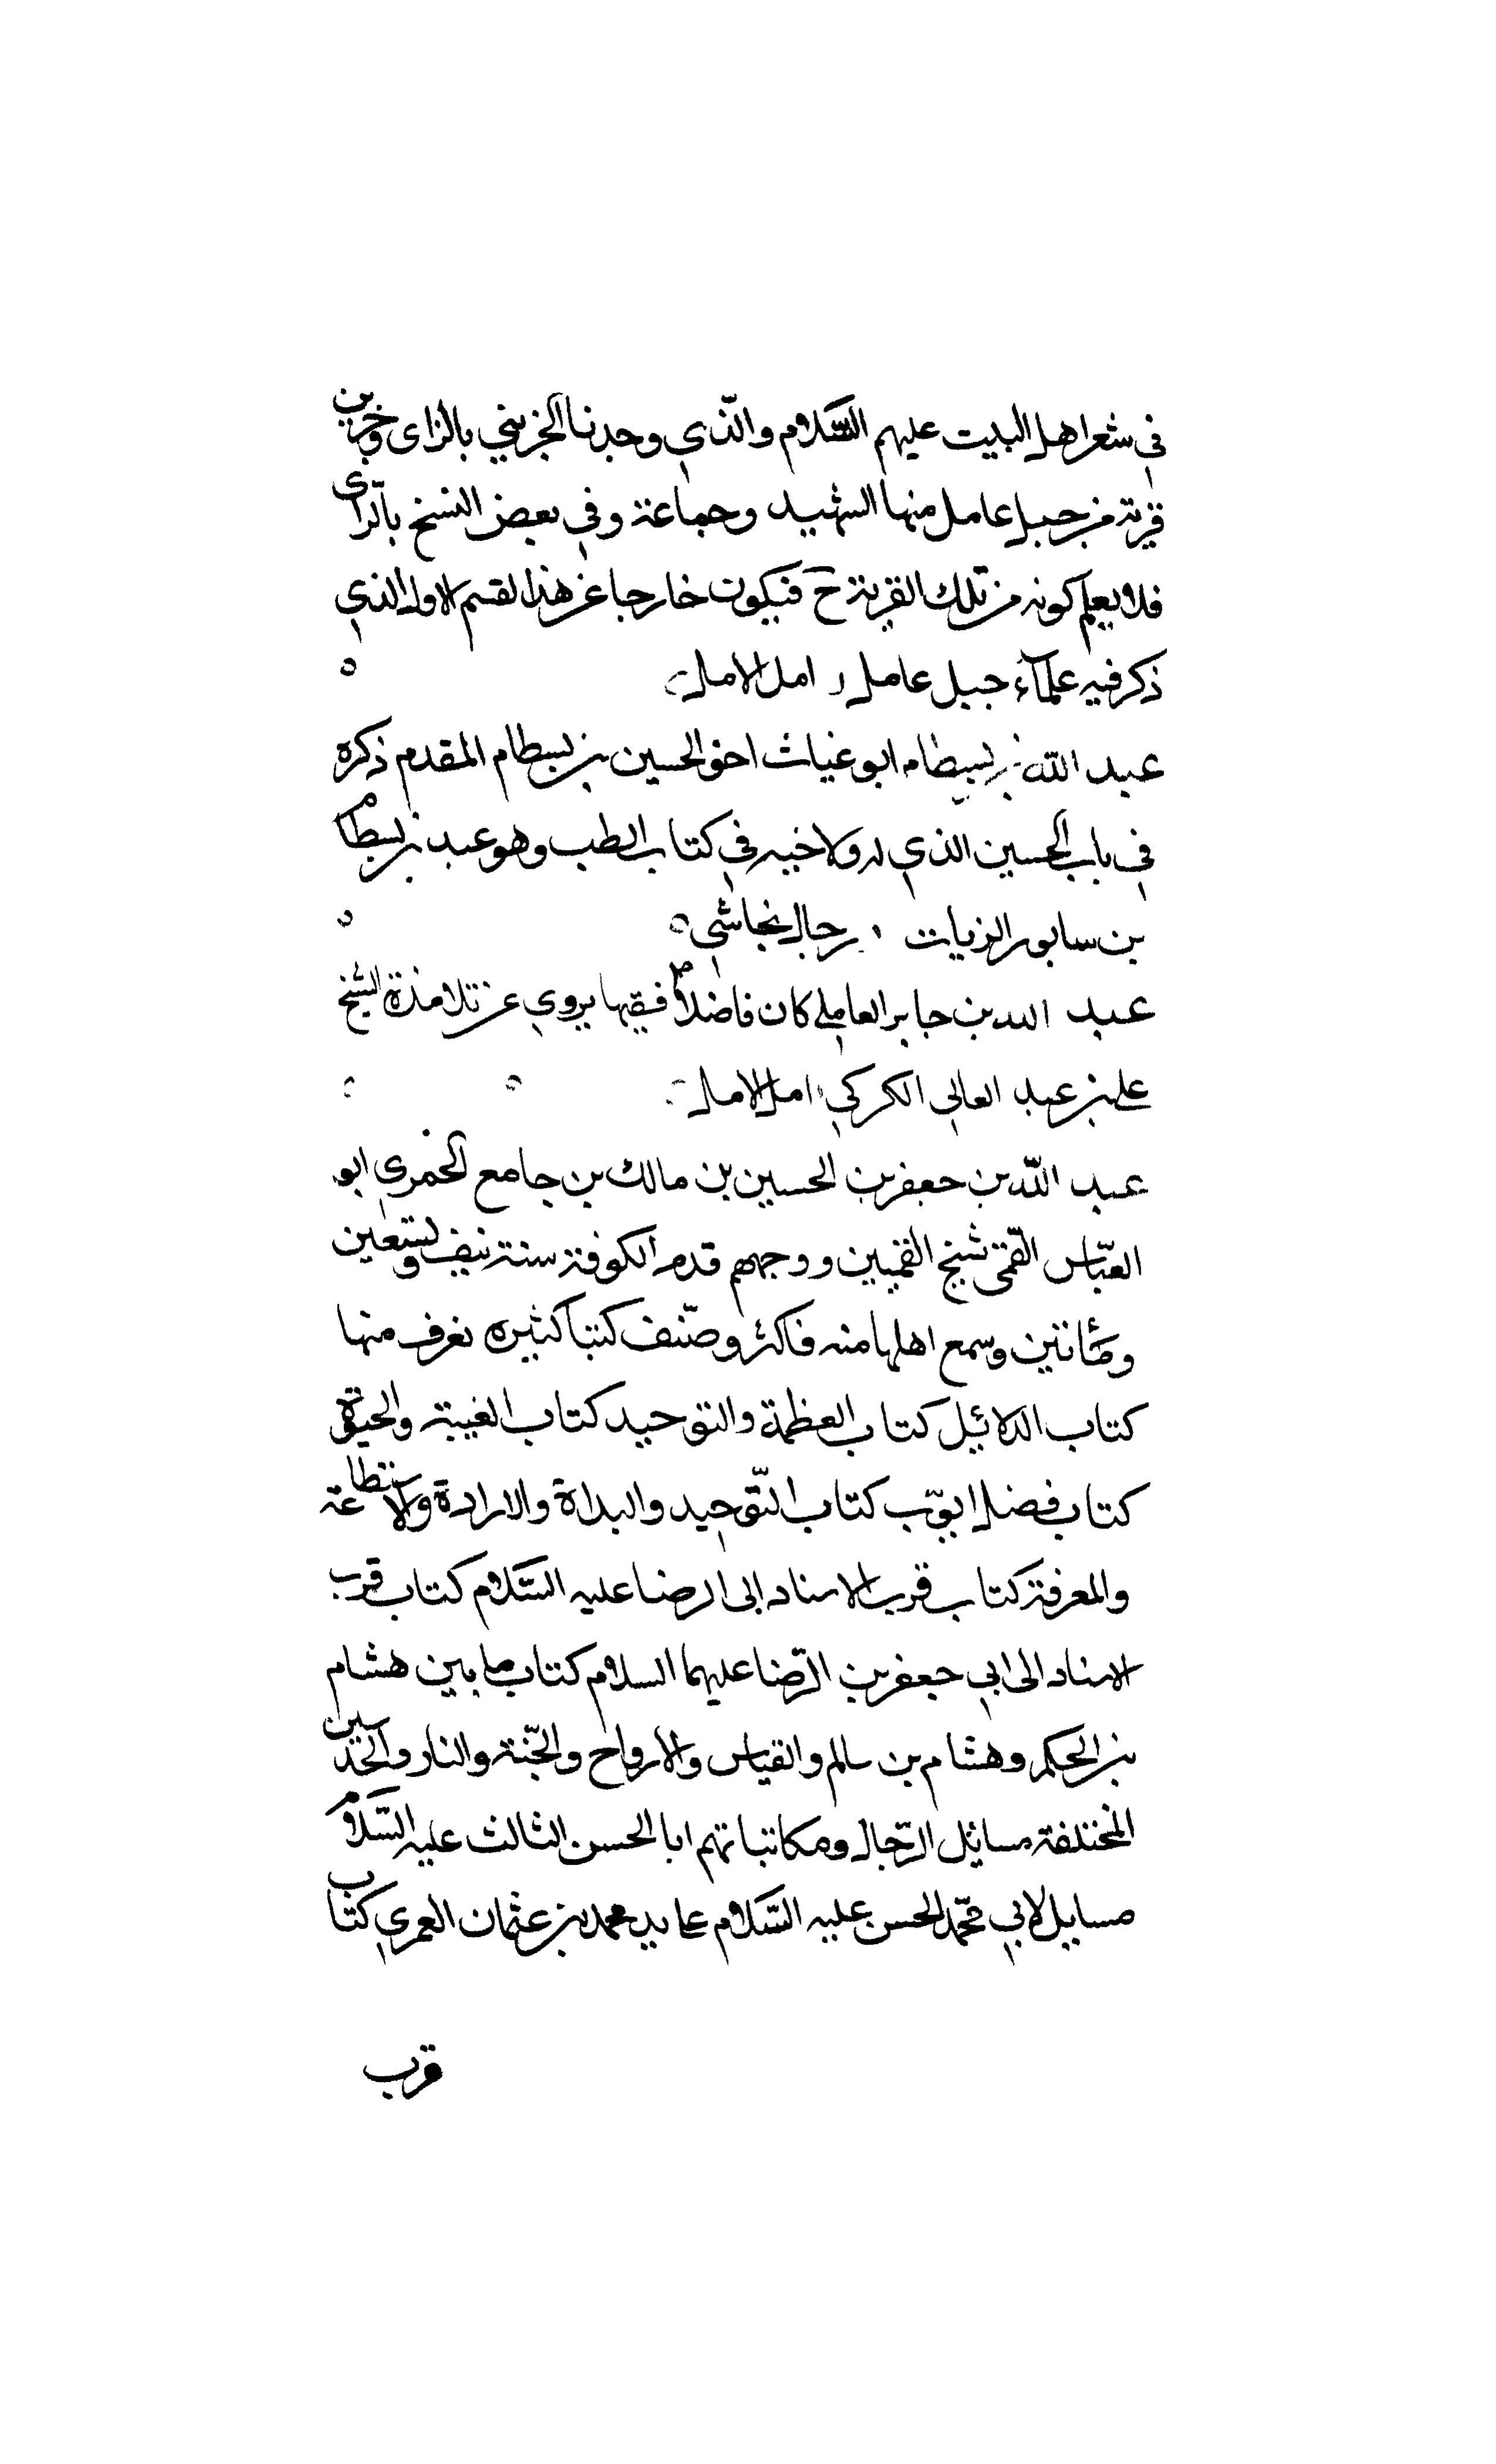 في شعراهل البيت عليهم السّلام والّذي وجدنا الجزيني بالزاى وجزين
قرية من جبل عامل منها الشهيد وجماعة وفي بعض النسخ بالراى
فلا يعلم كونه من تلك القرية ح فيكون خارجا عن هذا القسم الاول الذي
ذكرفيه علمآء جبل عامل امل الامل
عبد اللّه بن بسطام ابوغياث اخو الحسين بن بسطام المقدم ذكره
في باب الحسين الذي له ولاخيه في كتاب الطب وهو عبد بن بسطام
بن سابور الزيات رجال نجاشي
عبد الله بن جابر العاملي كان فاضلا فقيها يروي عن تلامذة الشيخ
علي بن عبد العالي الكركي امل الامل
عبد اللّه بن جعفر بن الحسين بن مالك بن جامع الحمري ابو
العبّاس القمّى شيخ القميين ووجههم قدم الكوفة سنة نيف وتسعين
ومأتين وسمع اهلها منه فاكثر وصّنف كتبا كثيره نعرف منها
كتاب الدلائيل كتاب العظمة والتوحيد كتاب الغيبة والحيرة
كتاب فضل ايوّب كتاب التّوحيد والبداة والارادة والاستطاعة
والمعرفة كتاب قرب الاسناد الى الرضا عليه السّلام كتاب قرب
الاسناد الى ابي جعفر بن الرّضا عليهما السلام كتاب ما بين هشام
بن الحكم وهشام بن سالم والقياس والارواح والجّنة والنار والحديثين
المختلفة مسائيل الرّجال ومكاتباتهم ابا الحسن الثالث عليه السّلام
مسايل لابي محّمد الحسن عليه السّلام على يد محمد بن عثمان العمري كتاب
قرب